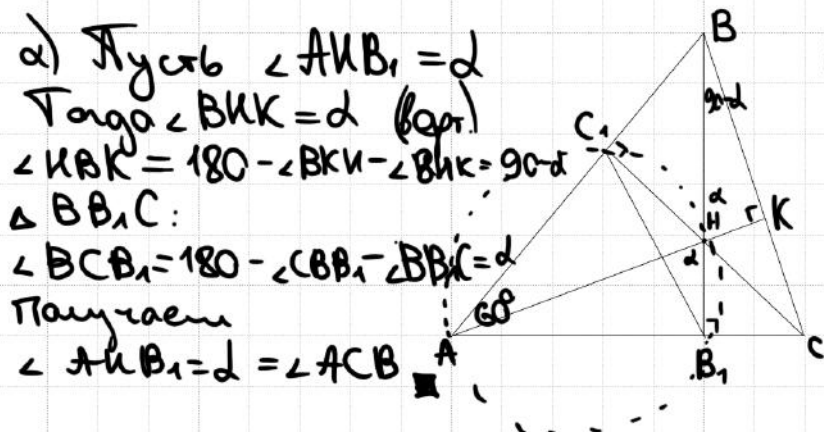 а) Пусть ∠AHB₁ = α
Тогда ∠BHK = α (верт.)
∠HBK = 180 - ∠BKH - ∠BHK = 90-α
△ BB₁C:
∠BCB₁ = 180 - ∠CBB₁ - ∠BB₁C = α
Получаем
∠ AHB₁ = α = ∠ACB ■
B
90-α
C₁
α
H
K
α
60°
A
B₁
C